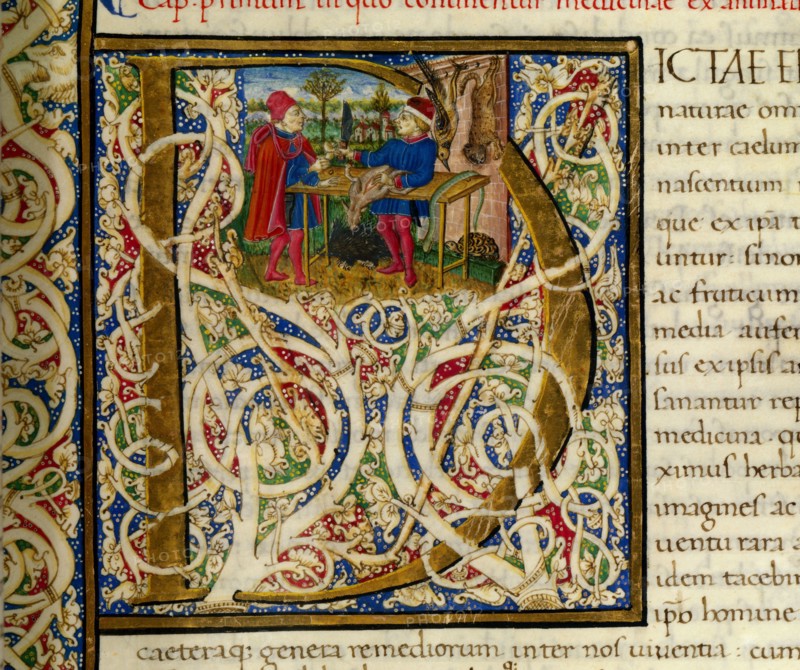 Cap. primum in quo continentur medicinae ex animali
D
ICTAE E
naturae om
inter caelum
nascentium
que ex ipa t
untur: sino
ac fruticum
media aufer
sus ex ipsis a
sanantur rep
medicina. q
ximus herba
imagines ac
uentu rara a
idem tacebi
ipo homine
caeteraq; genera remediorum inter nos uiuentia: cum